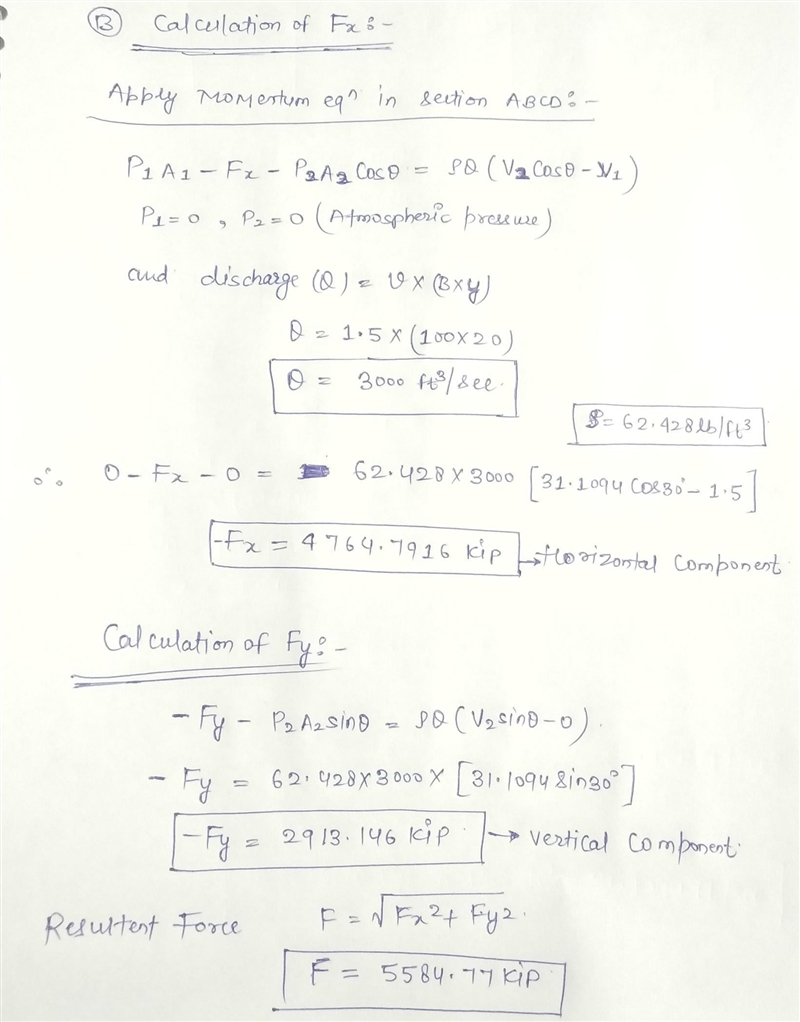 Ⓑ Calculation of Fx :-
Apply Momentum eqⁿ in section ABCD :-
P1 A1 - Fx - P2 A2 Cosθ = ρQ (V2 Cosθ - V1)
P1 = 0 , P2 = 0 (Atmospheric pressure)
and discharge (Q) = V × (B×y)
Q = 1.5 × (100×20)
Q = 3000 ft³/sec.
ρ = 62.428 lb/ft³
∴ 0 - Fx - 0 = 62.428 × 3000 [31.1094 Cos30° - 1.5]
-Fx = 4764.7916 kip → Horizontal Component
Calculation of Fy :-
- Fy - P2 A2 sinθ = ρQ (V2 sinθ - 0).
- Fy = 62.428×3000 × [31.1094 Sin30°]
-Fy = 2913.146 kip → Vertical Component.
Resultent Force F = √Fx² + Fy².
F = 5584.77 kip